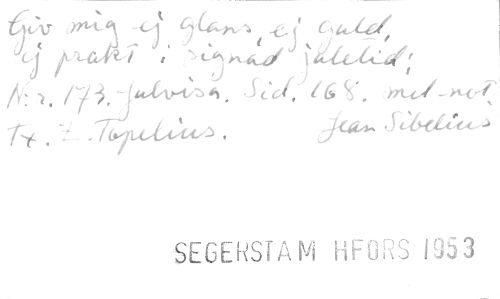 Giv mig ej glans, ej guld,
ej prakt i signad juletid;
N:r. 173. Julvisa. Sid. 168. mel-not.
Tx. Z. Topelius. Jean Sibelius
SEGERSTAM HFORS 1953